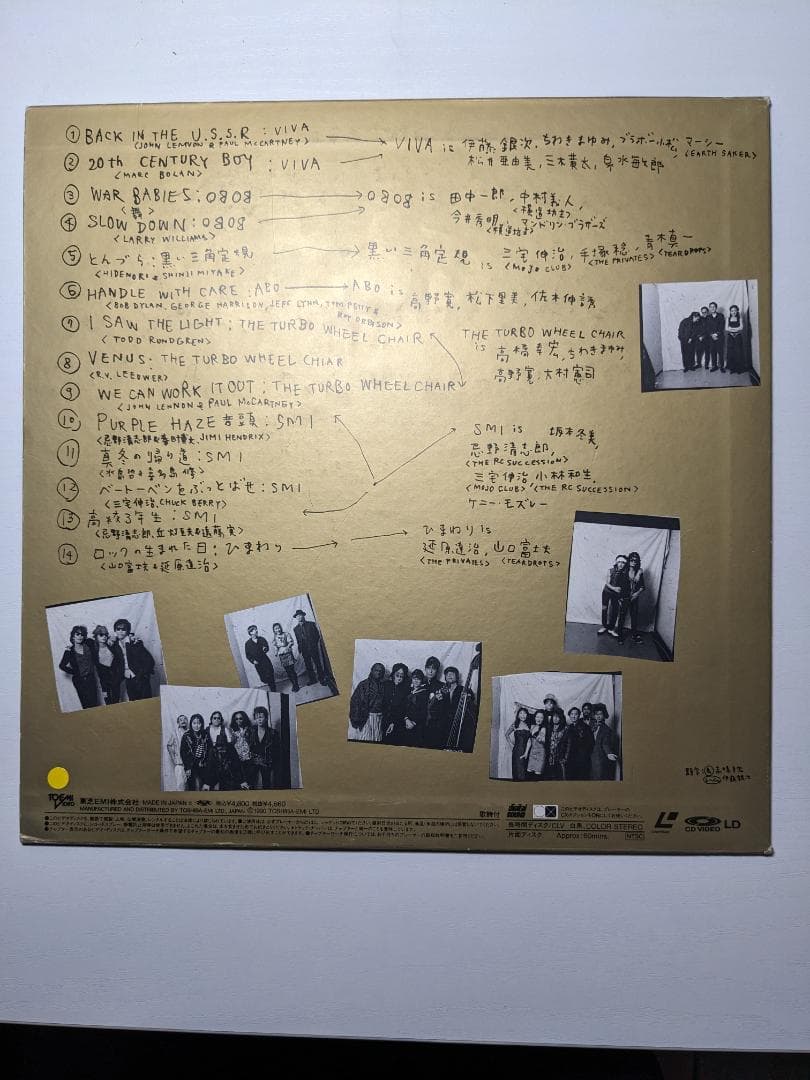 ① BACK IN THE U.S.S.R : VIVA
(JOHN LENNON & PAUL McCARTNEY)
② 20th CENTURY BOY : VIVA
<MARC BOLAN>
VIVA is 伊藤銀次, ちわきまゆみ, ブラボー小松, マーシー
<EARTH SAKER>
松井亜由美, 三木貴太,
③ WAR BABIES : 0808
④ SLOW DOWN : 0808
<LARRY WILLIAMS>
0808 is 田中一郎, 中村
<横道坊主>
今井秀明, マンドリン・ブラザーズ
<横道坊主>
⑤ とんづら : 黒い三角定規
<HIDENORI & SHINJI MIYAKE>
黒い三角定規 is 三宅伸治, 手塚稔, 青木真一
<MOJO CLUB> <THE PRIVATES> <TEARDROPS>
⑥ HANDLE WITH CARE : ABO
<BOB DYLAN, GEORGE HARRISON, JEFF LYNN, TOM PETTY & ROY ORBISON>
ABO is 高野寛, 松下里美, 佐木伸誘
⑦ I SAW THE LIGHT : THE TURBO WHEEL CHAIR
<TODD RUNDGREN>
⑧ VENUS : THE TURBO WHEEL CHIAR
<R.V. LEEOWER>
⑨ WE CAN WORK IT OUT : THE TURBO WHEEL CHAIR
<JOHN LENNON & PAUL McCARTNEY>
THE TURBO WHEEL CHAIR
is 高橋幸宏, ちわきまゆみ,
高野寛, 大村憲司
⑩ PURPLE HAZE音頭 : SMI
<忌野清志郎&春日博文, JIMI HENDRIX>
⑪ 真冬の帰り道 : SMI
<水島哲&喜多島修>
⑫ ベートーベンをぶっとばせ : SMI
<三宅伸治, CHUCK BERRY>
⑬ 高校3年生 : SMI
<忌野清志郎, 丘灯至夫&遠藤実>
SMI is 坂本冬美,
忌野清志郎,
<THE RC SUCCESSION>
三宅伸治, 小林和生,
<MOJO CLUB> <THE RC SUCCESSION>
ケニー・モズレー
⑭ ロックの生まれた日 : ひまわり
<山口富士夫&延原達治>
ひまわり is
延原達治, 山口富士夫
<THE PRIVATES> <TEARDROPS>
TOEMI VIDEO
東芝EMI株式会社 MADE IN JAPAN 税込¥4,800 税抜¥4,660
MANUFACTURED AND DISTRIBUTED BY TOSHIBA-EMI LTD, JAPAN ©1990 TOSHIBA-EMI LTD
歌詞付
digital sound
CX
長時間ディスク/CLV 白黒, COLOR STEREO
片面ディスク Approx:60mins. NTSC
LASERDISC
CD VIDEO LD